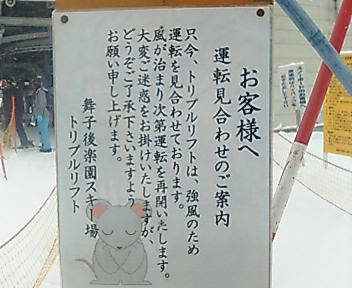 お客様へ
運転見合わせのご案内
只今、トリプルリフトは、強風のため
運転を見合わせております。
風が治まり次第運転を再開いたします。
大変ご迷惑をお掛けいたしますが、
どうぞご了承下さいますよう
お願い申し上げます。
舞子後楽園スキー場
トリプルリフト